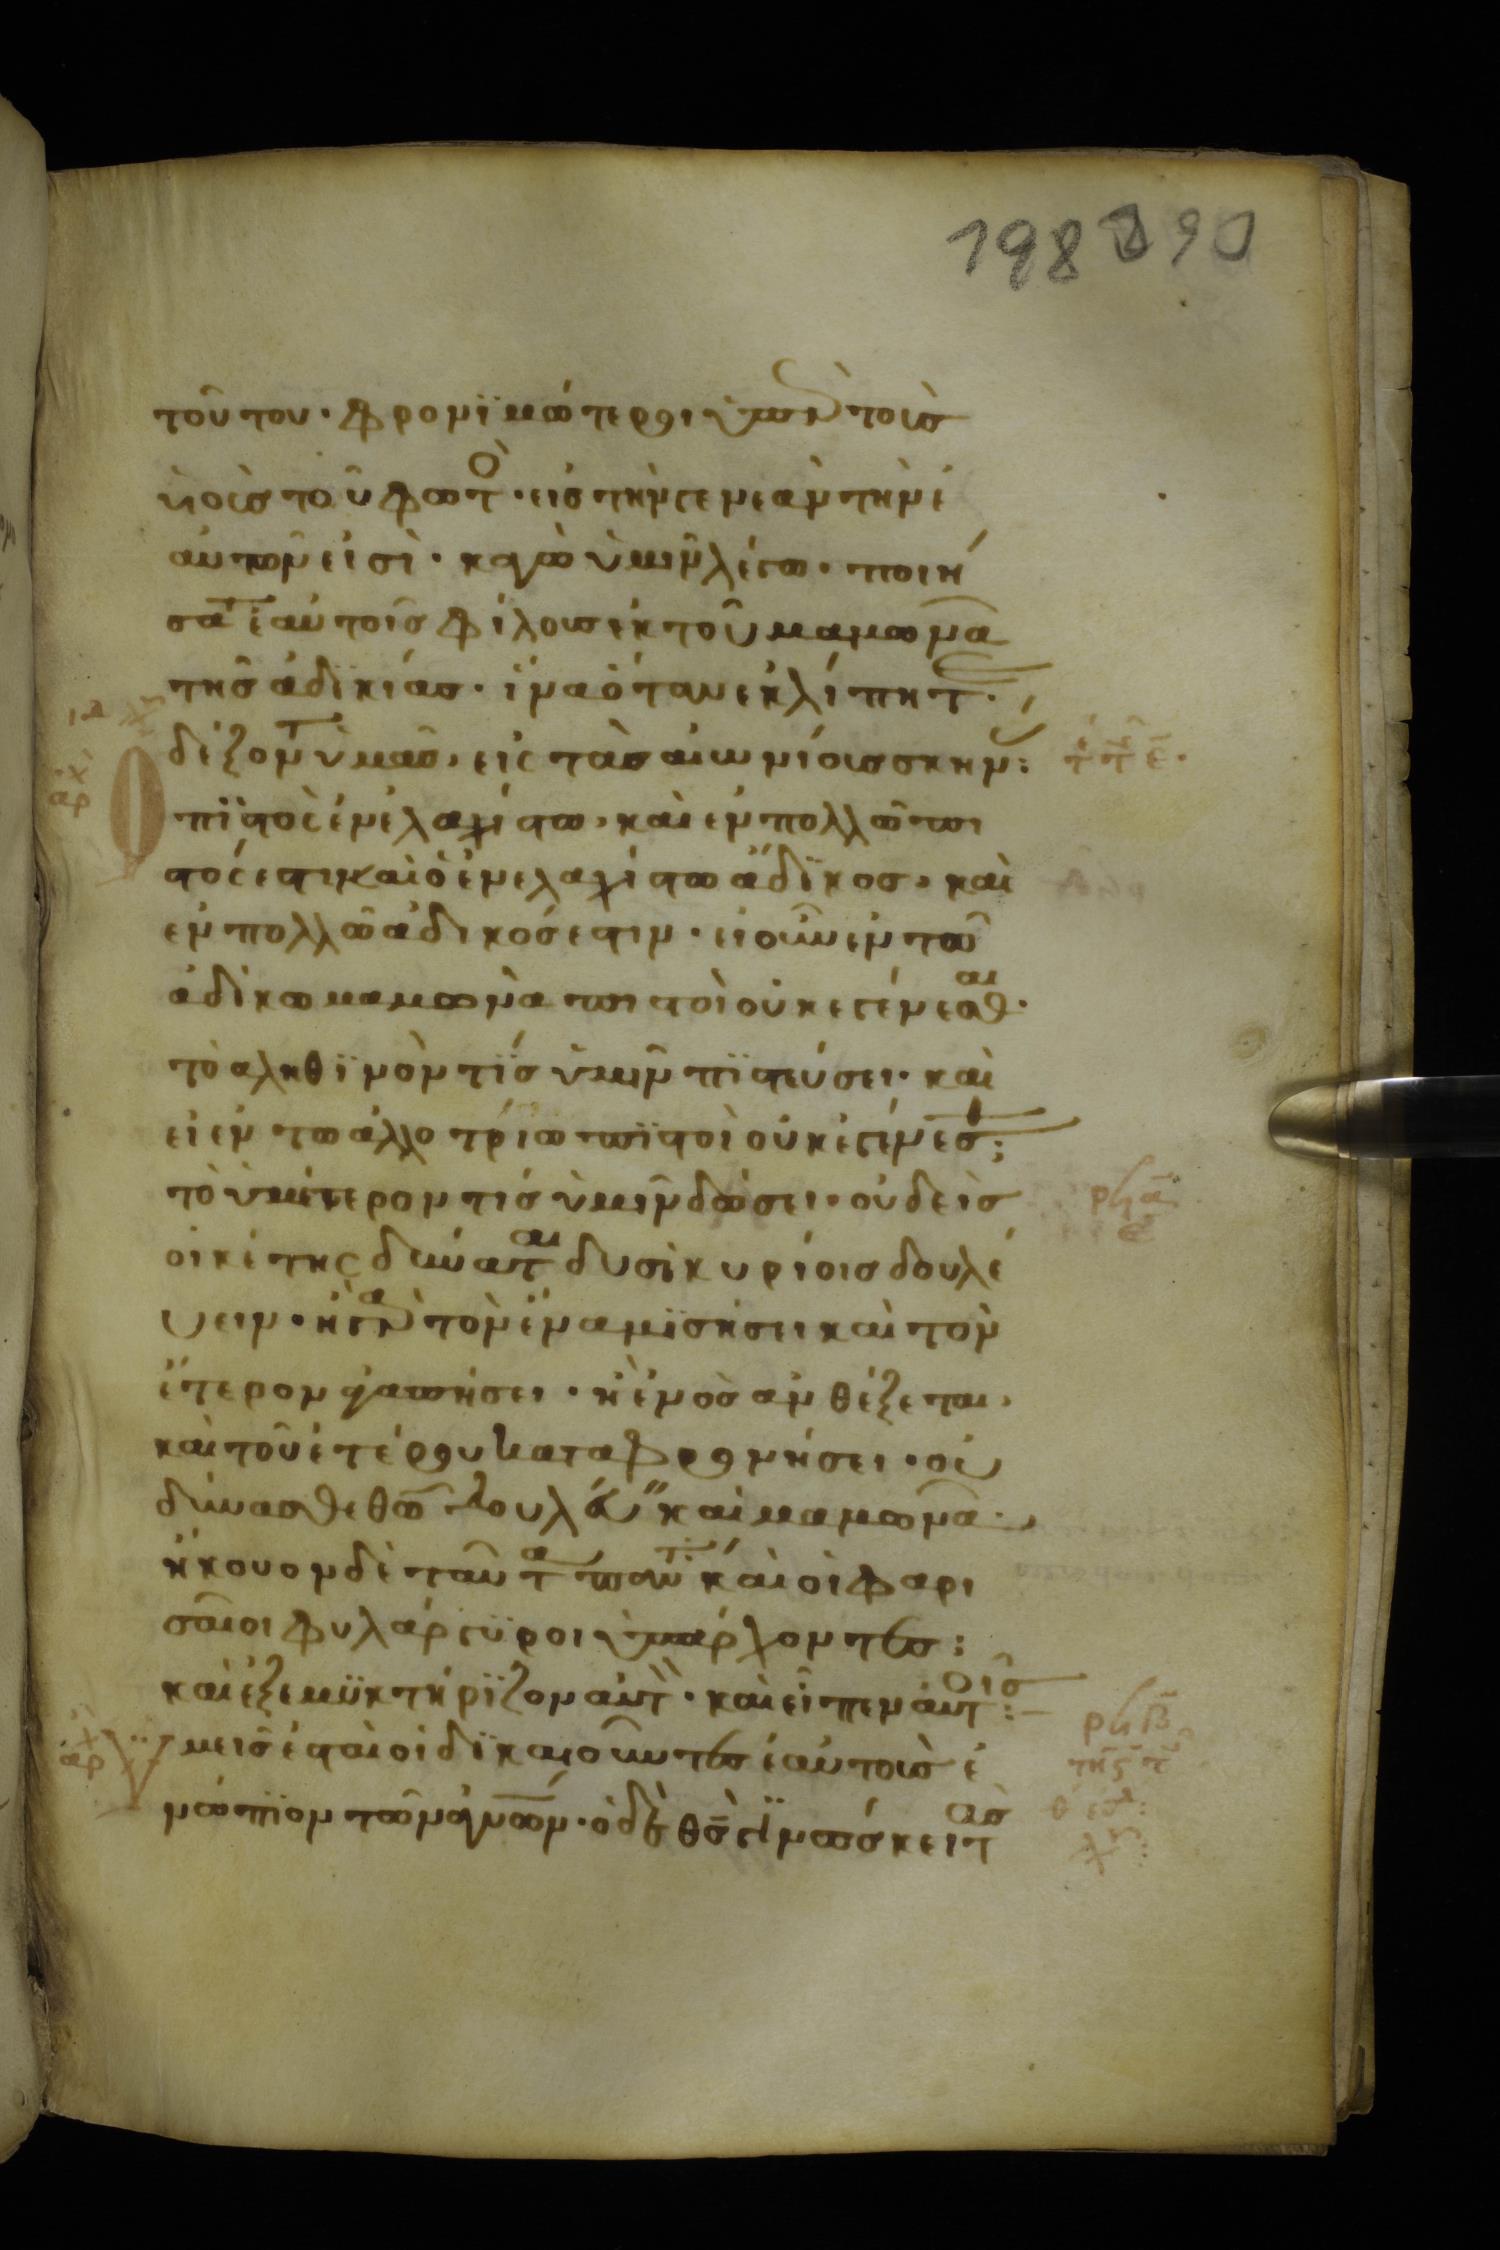 198 290
τοῦτου· φρονϊμώτεροι ὑπὲρ τοὺσ
ὑιοὺσ τοῦ φωτ · εἰσ τὴν γενεὰν τὴν ἑ
αυτῶν εἰσὶ · καγὼ ὑμῖν λέγω · ποιή
σατ ἑαυτοῖσ φίλουσ ἐκ τοῦ μαμωνᾶ
τῆσ ἀδϊκίασ · ἵνα ὅταν ἐκλίπητ ·
δέξοντ ὑμᾶσ, εἰσ τὰσ αἰωνίουσ σκην :
πϊστὸσ ἐν ἐλαχίστω, καὶ ἐν πολλῶ πι
στόσ ἐστι καὶ ὁ ἐν ελαχίστω ἄδϊκοσ, καὶ
ἐν πολλῶ ἀδικόσ ἐστιν · εἰ οὖν ἐν τῶ
ἀδίκω μαμωνὰ πιστοὶ οὐκ ἐγένεσθαι ·
τὸ αληθϊνὸν τίσ ὑμῖν πϊστεύσει · καὶ
εἰ ἐν τω ἀλλοτρίω πϊστοὶ οὐκ ἐγένεσθ;
τὸ ὑμέτερον τίσ ὑμῖν δώσει · οὐδεὶσ
οἰκέτησ δύναται δυσὶ κυρίοισ δουλέ
υειν · ἢ γὰρ τὸν ἕνα μϊσήσει καὶ τὸν
ἕτερον ἀγαπήσει · ἢ ἑνὸσ ἀνθέξεται,
καὶ τοῦ ἑτέρου καταφρονήσει · οὐ
δύνασθε θῶ δουλέυειν καὶ μαμωνᾶ ·
ἤκουον δὲ ταῦτα παντ καὶ οἱ φαρι
σαῖοι φυλάργϋροι ὑπάρχοντεσ :
καὶ ἐξεμϋκτήρϊζον αὐτ · καὶ εἶπεν αὐτοῖσ :
μεῖσ ἐσταὶ οἱ δϊκαιοῦντεσ ἑαυτοὺσ ἐ
νώπϊον τῶν ἀνων · ὁ δὲ θσ γϊνώσκει τασ